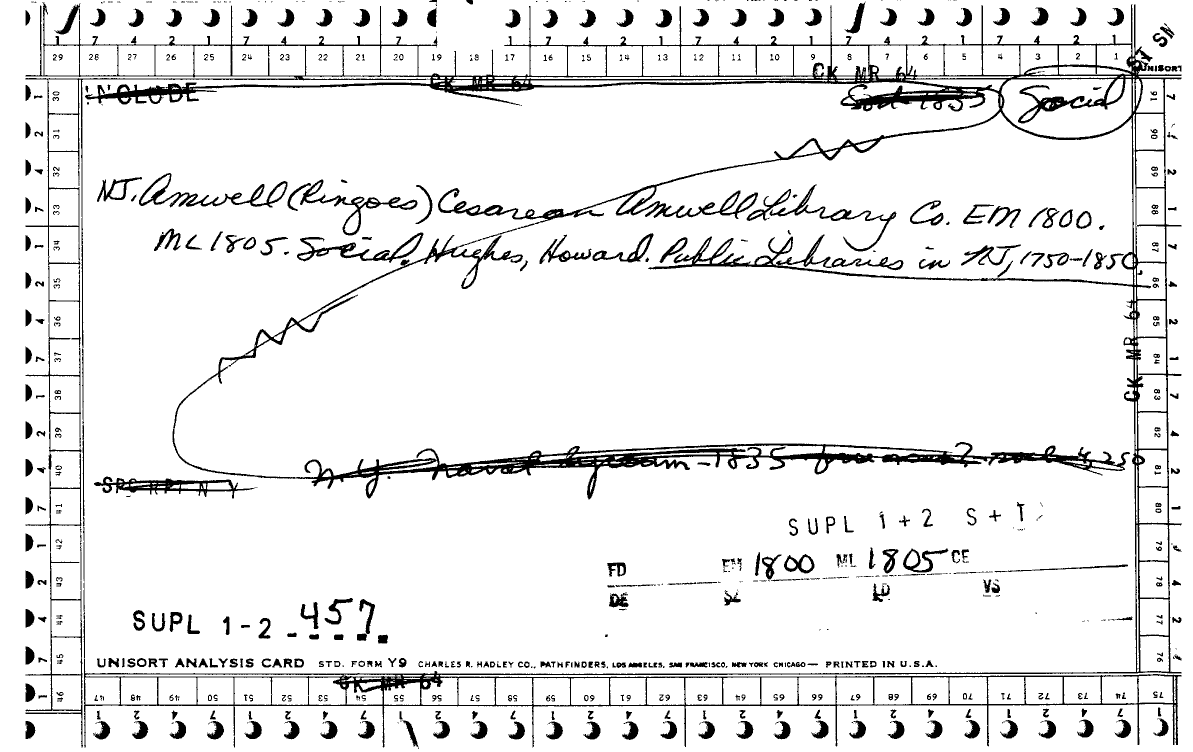 1 7 4 2 1 7 4 2 1 7 4 2 1 7 4 2 1 7 4 2 1 7 4 2 1
29 28 27 26 25 24 23 22 21 20 19 18 17 16 15 14 13 12 11 10 9 8 7 6 5 4 3 2 1
ST SN
UNISORT
CK MR 64
CK MR 64
Social
NJ. Amwell (Ringoes) Cesarean Amwell Library Co. EM 1800.
ML 1805. Social. Hughes, Howard. Public Libraries in NJ, 1750-1850,
CK MR 64
N.Y. Naval Lyceum - 1835
SUPL 1+2 S+T
FD EM 1800 ML 1805 CE
DE SZ LD VS
SUPL 1-2 457
UNISORT ANALYSIS CARD STD. FORM Y9 CHARLES R. HADLEY CO., PATHFINDERS, LOS ANGELES, SAN FRANCISCO, NEW YORK CHICAGO — PRINTED IN U.S.A.
CK MR 64
47 48 49 50 51 52 53 54 55 56 57 58 59 60 61 62 63 64 65 66 67 68 69 70 71 72 73 74 75